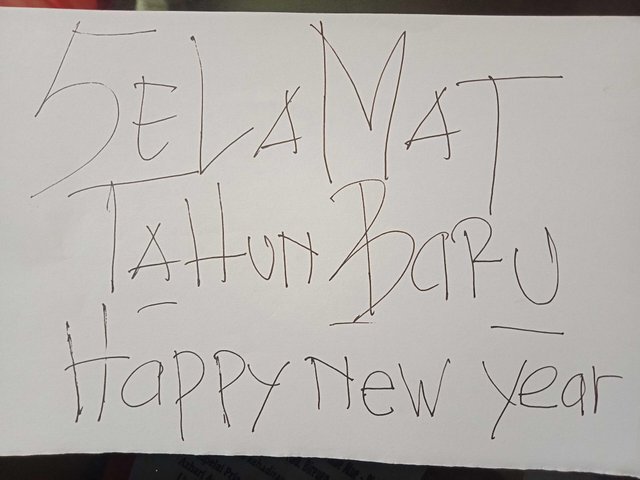 SELAMAT
TAHUN BARU
Happy New year